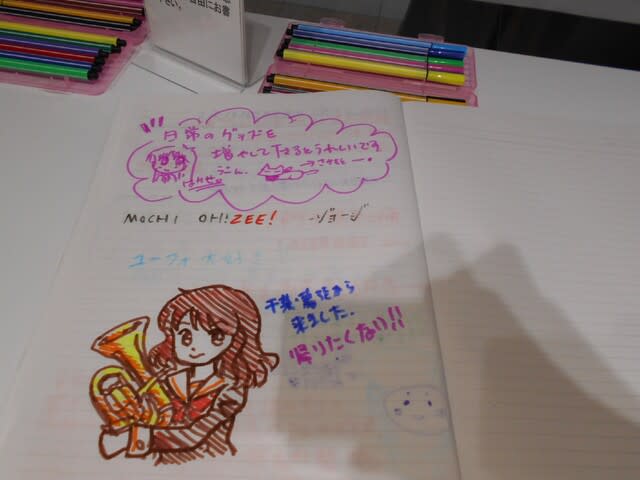 さい。
自由にお書
日常のグッズを
増やして下さるとうれしいです
はかせ
→さかもと
MOCHI OH!ZEE! -ジョージ
ユーフォ大好き
千葉・幕張から
来ました。
帰りたくない!!